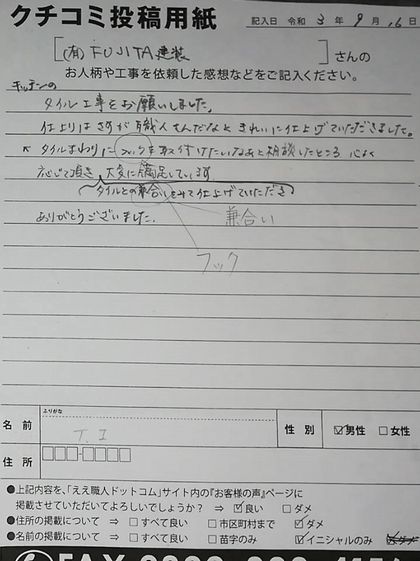 クチコミ投稿用紙
記入日 令和 3 年 9 月 16 日
[(有) FUJITA 建装]さんの
お人柄や工事を依頼した感想などをご記入ください。
キッチンの
タイル工事をお願いしました。
仕上りはさすが職人さんだなと きれいに仕上げていただきました。
タイルまわりに フックを取り付けたいなあと相談したところ 心よく
応じて頂き 大変に満足しています
(タイルとの兼合いをみて仕上げていただき)
ありがとうございました.
兼合い
フック
ふりがな
名 前
T. I
性 別
☑男性 □女性
住 所
●上記内容を、「ええ職人ドットコム」サイト内の『お客様の声』ページに
掲載させていただいてよろしいでしょうか? ⇒ ☑良い □ダメ
●住所の掲載について ⇒ □すべて良い □市区町村まで ☑ダメ
●名前の掲載について ⇒ □すべて良い □苗字のみ ☑イニシャルのみ ☑ダメ